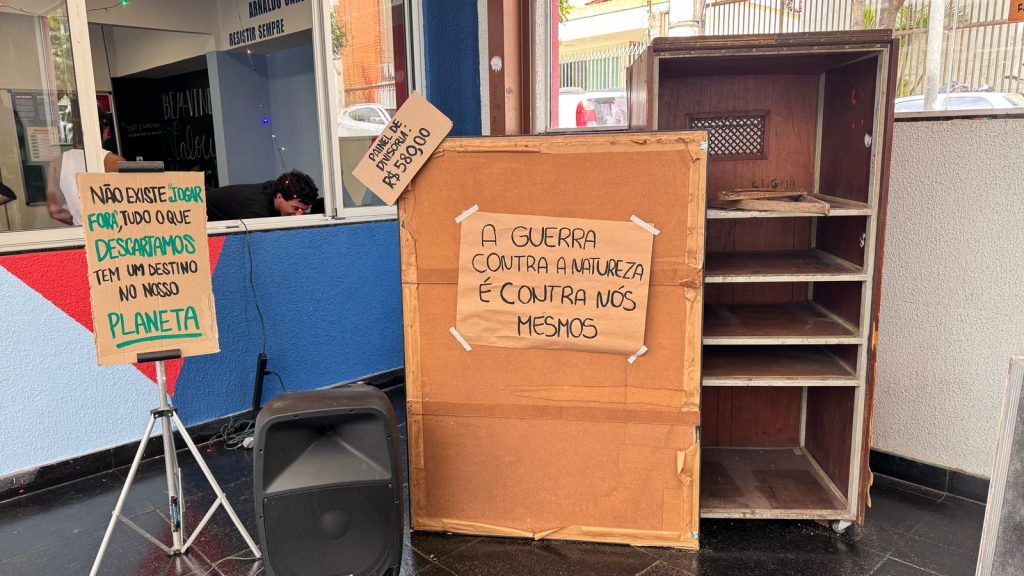 ARNALDO
RESISTIR SEMPRE
BEM-VIN
NÃO EXISTE "JOGAR
FORA", TUDO O QUE
DESCARTAMOS
TEM UM DESTINO
NO NOSSO
PLANETA
PAINEL DE
DIVISÓRIA:
R$ 589,00
A GUERRA
CONTRA A NATUREZA
É CONTRA NÓS
MESMOS